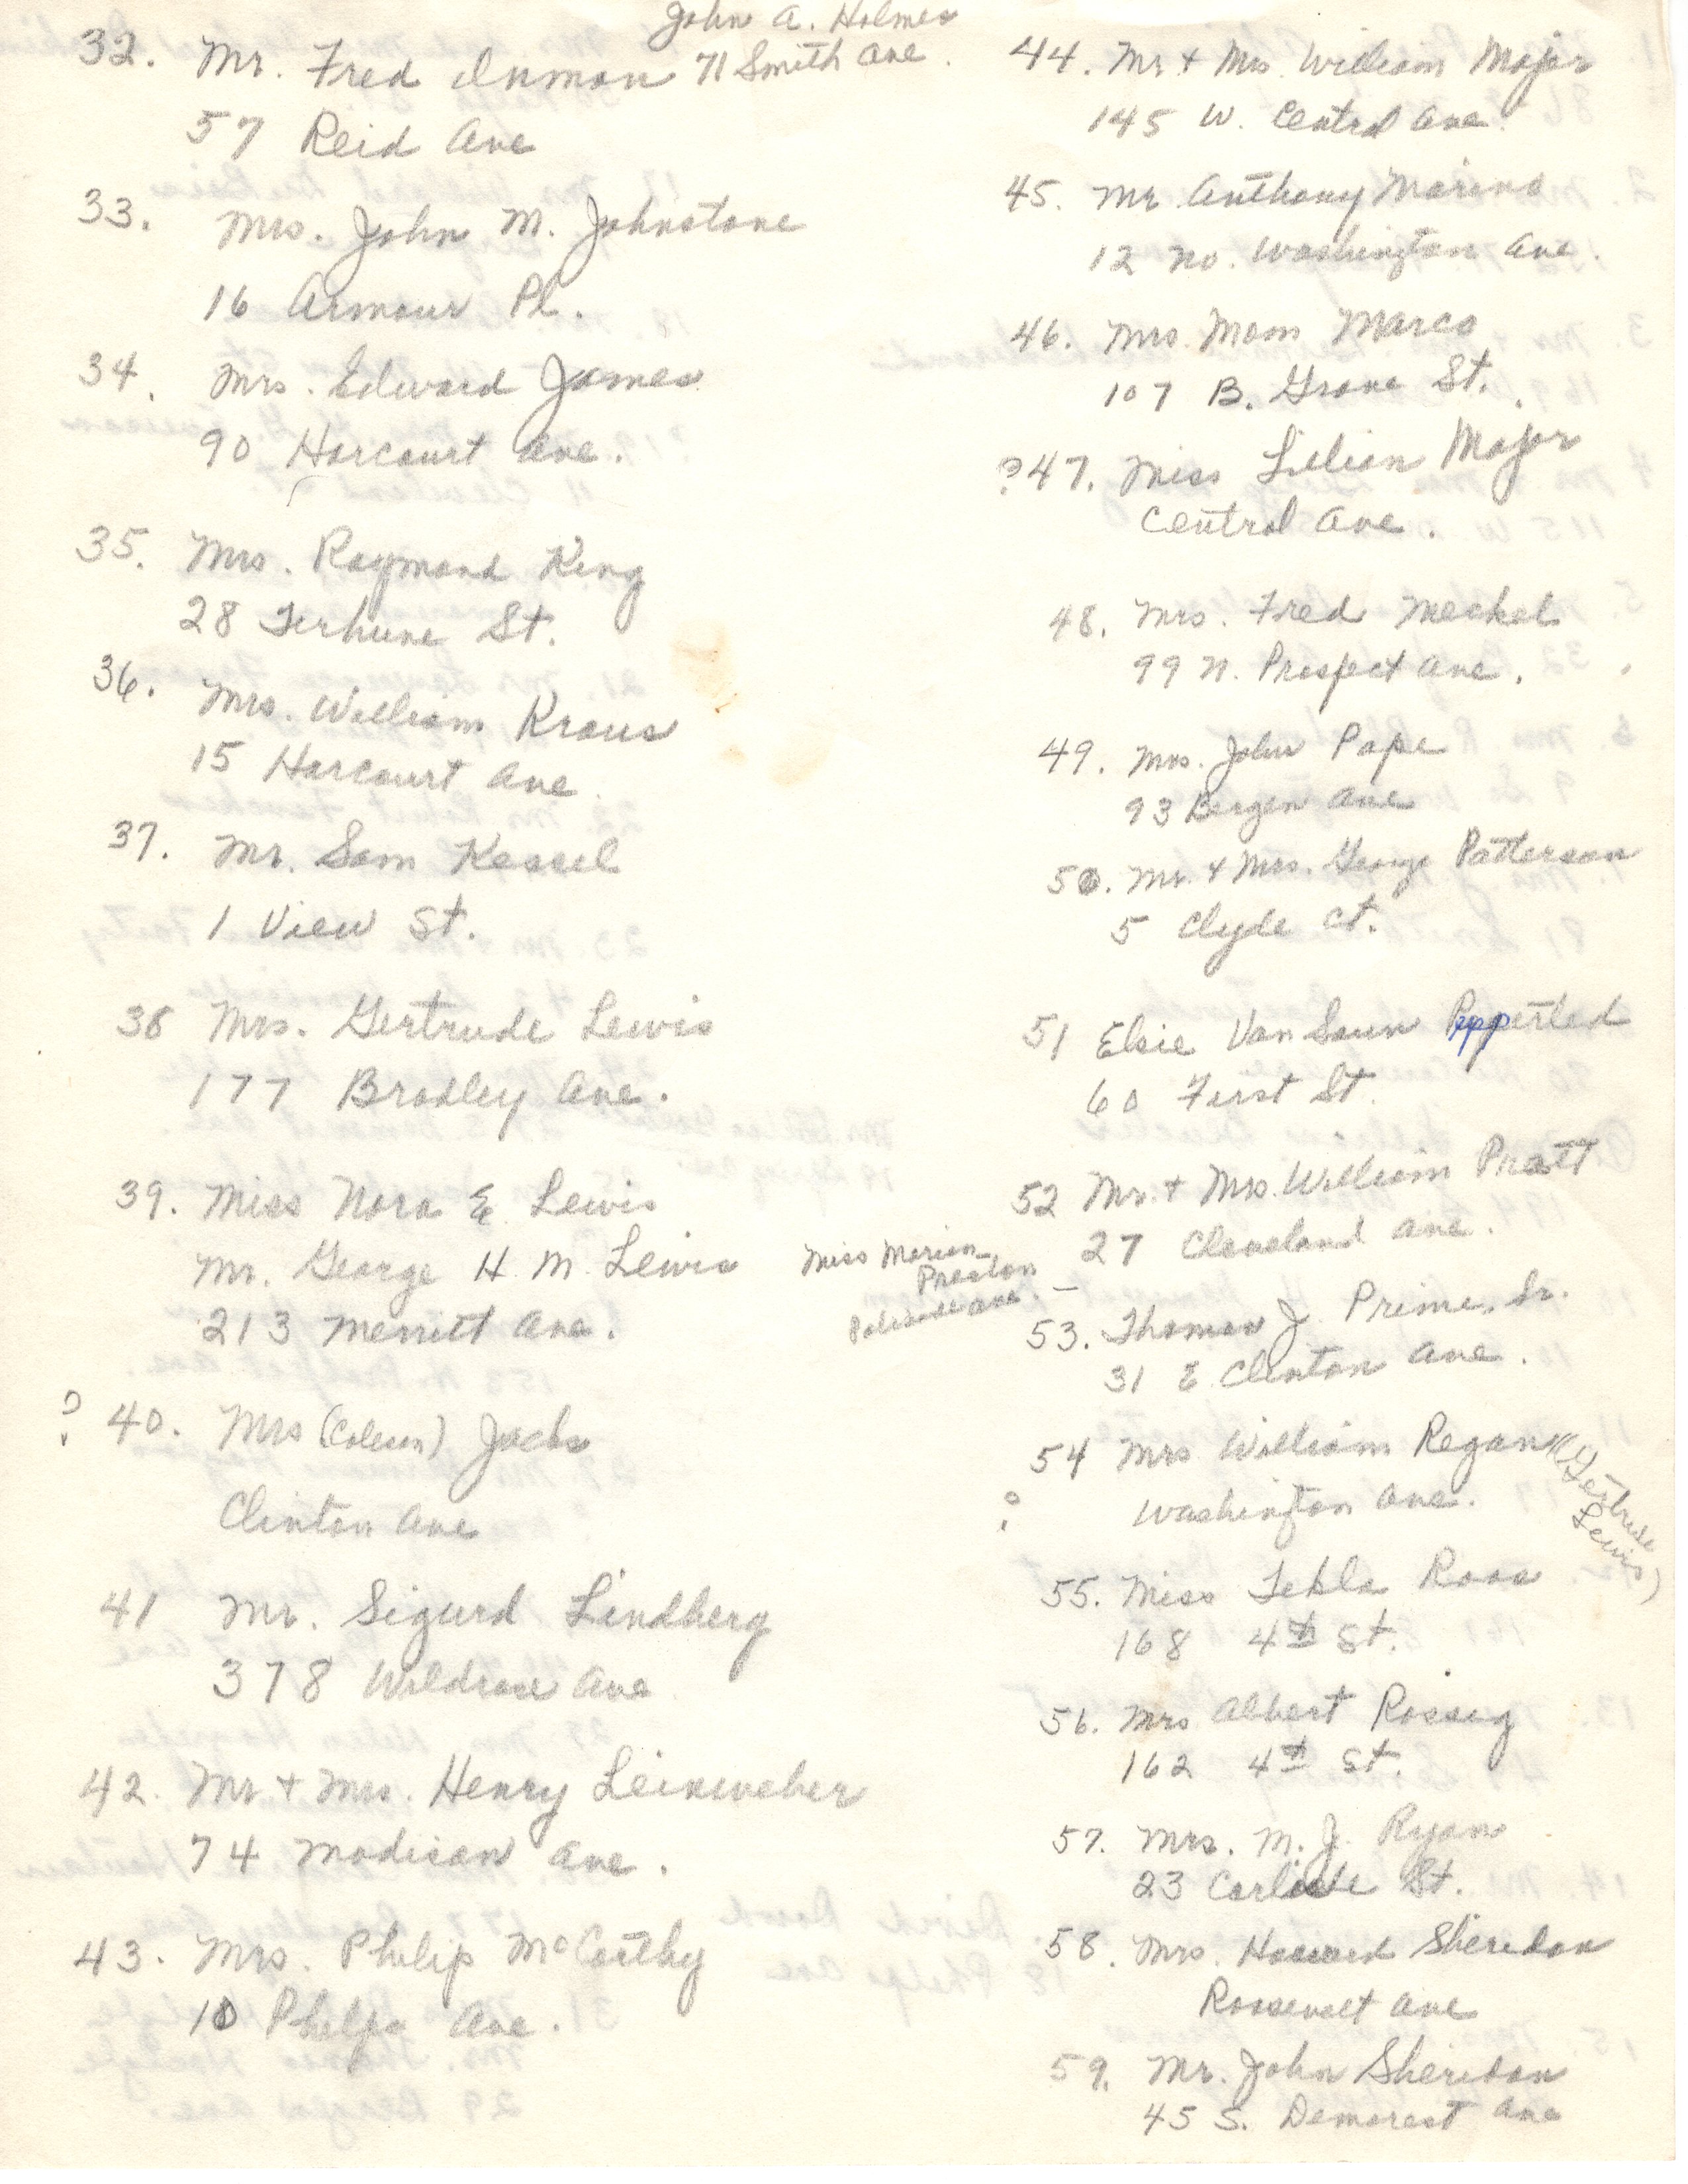 John A. Holmes
71 Smith Ave.
32. Mr. Fred Inman
57 Reid Ave
33. Mrs. John M. Johnstone
16 Armour Pl.
34. Mrs. Edward James
90 Harcourt Ave.
35. Mrs. Raymond King
28 Terhune St.
36. Mrs. William Kraus
15 Harcourt Ave.
37. Mr. Sam Kessel
1 View St.
38 Mrs. Gertrude Lewis
177 Bradley Ave.
39. Miss Nora E. Lewis
Mr. George H. M. Lewis
213 Merritt Ave.
? 40. Mrs (Coleen) Jachs
Clinton Ave
41 Mr. Sigurd Lindberg
378 Wildrose Ave
42. Mr + Mrs. Henry Leineweber
74 Madison Ave.
43. Mrs. Philip McCarthy
10 Phelps Ave.
44. Mr + Mrs William Major
145 W. Central Ave.
45. Mr. Anthony Marino
12 No. Washington Ave.
46. Mrs. Mom Marco
107 B. Grove St.
? 47. Miss Lilian Major
Central Ave.
48. Mrs. Fred Meckel
99 N. Prospect Ave.
49. Mrs. John Pape
93 Bergen Ave
50. Mr. + Mrs. George Patterson
5 Clyde Ct.
51 Elsie Van Saun
60 First St.
52 Mr. + Mrs. William Pratt
27 Cleveland Ave.
Miss Marion
Preston
Palisade Ave. —
53. Thomas J. Prime, Sr.
31 E. Clinton Ave.
54 Mrs William Regan ((Gertrude
Lewis)
? Washington Ave.
55. Miss Tekla Roos
168 4th St.
56. Mrs Albert Rossig
162 4th St.
57. Mrs. M. J. Ryan
23 Carlisle St.
58. Mrs. Howard Sheridan
Roosevelt Ave
59. Mr. John Sheridan
45 S. Demarest Ave